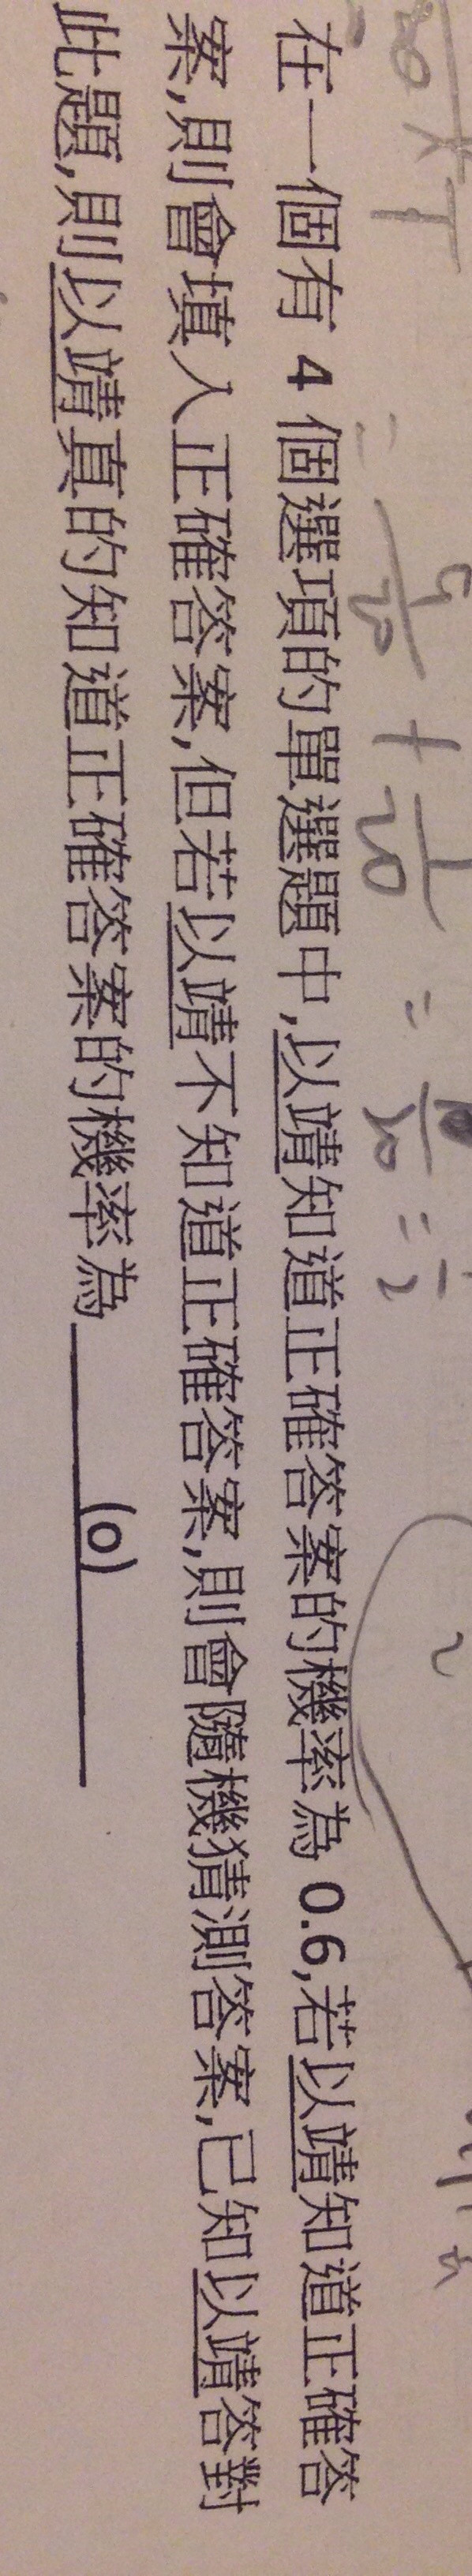 = 9/20 + 1/20 = 10/20 = 1/2
在一個有 4 個選項的單選題中,以靖知道正確答案的機率為 0.6,若以靖知道正確答
案,則會填入正確答案,但若以靖不知道正確答案,則會隨機猜測答案,已知以靖答對
此題,則以靖真的知道正確答案的機率為 (o)